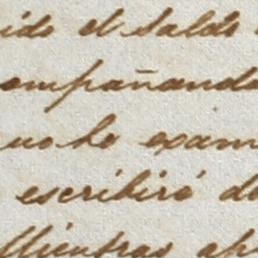 ido el saldo
ompañando
no he exam
escribiré d
Mientras ap